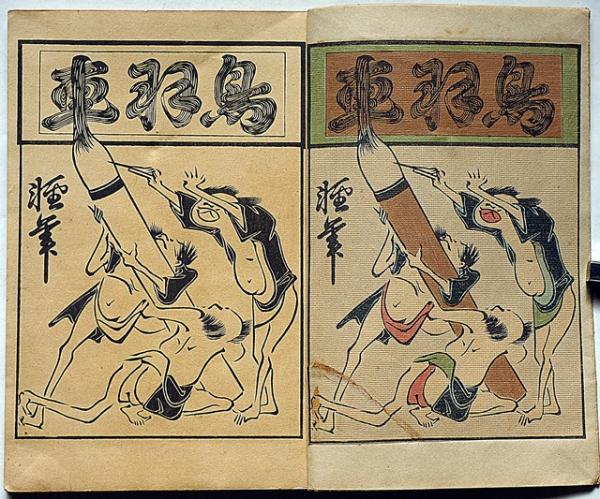 鳥羽車
軽筆
鳥羽車
軽筆